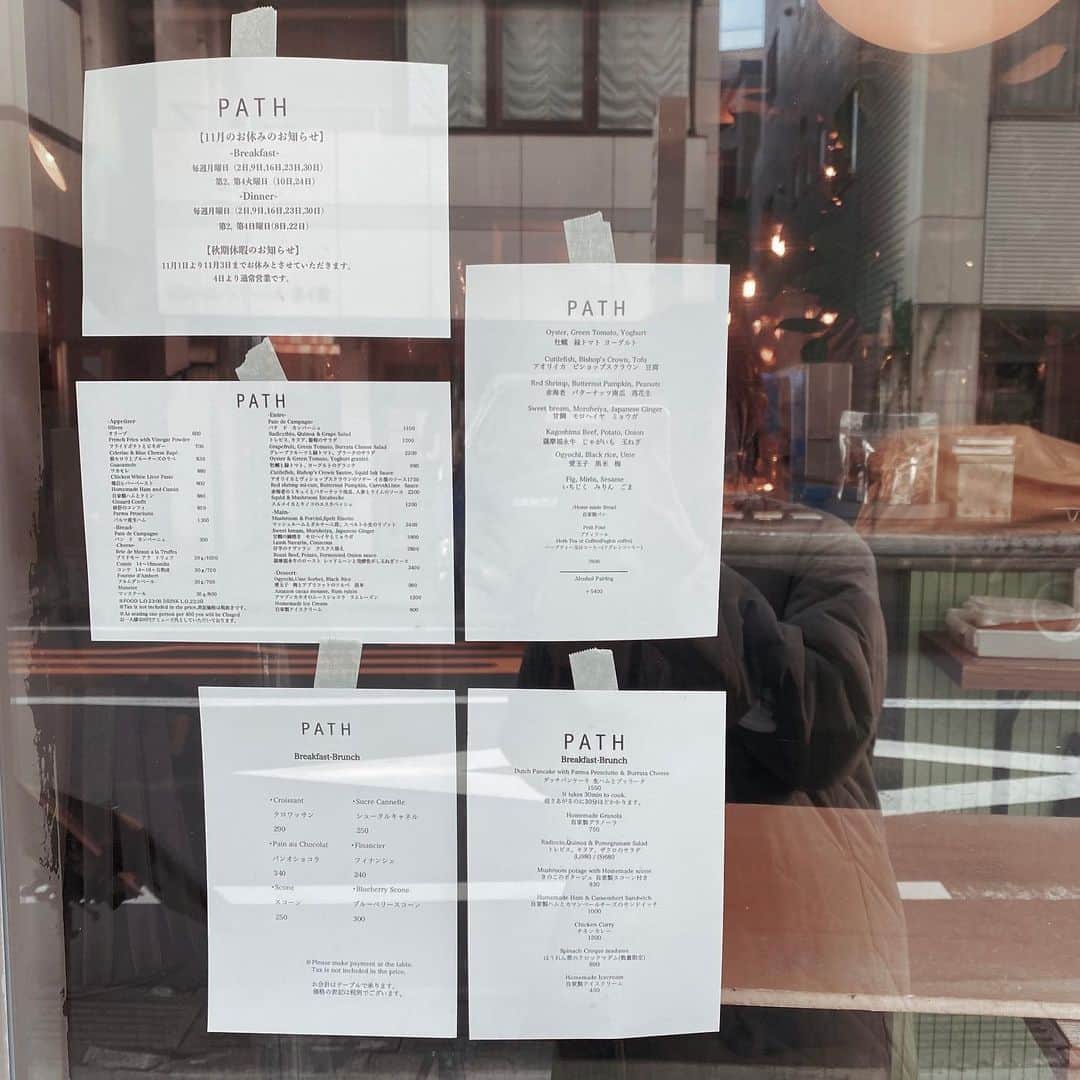 PATH
【11月のお休みのお知らせ】
-Breakfast-
毎週月曜日（2日,9日,16日,23日,30日）
第2, 第4火曜日（10日,24日）
-Dinner-
毎週月曜日（2日,9日,16日,23日,30日）
第2, 第4日曜日(8日,22日）
【秋期休暇のお知らせ】
11月1日より11月3日までお休みとさせていただきます。
4日より通常営業です。
PATH
Oyster, Green Tomato, Yoghurt
牡蠣 緑トマト ヨーグルト
Cuttlefish, Bishop's Crown, Tofu
アオリイカ ビショップスクラウン 豆腐
Red Shrimp, Butternut Pumpkin, Peanuts
赤海老 バターナッツ南瓜 落花生
Sweet bream, Moroheiya, Japanese Ginger
甘鯛 モロヘイヤ ミョウガ
Kagoshima Beef, Potato, Onion
薩摩福永牛 じゃがいも 玉ねぎ
Ogyochi, Black rice, Ume
愛玉子 黒米 梅
Fig, Mirin, Sesame
いちじく みりん ごま
Home made Bread
自家製パン
Petit Four
プティフール
Alcohol Pairing
+5400
PATH
-Appetizer
Olives
オリーブ 600
French Fries with Vinegar Powder
フライドポテトとビネガー 700
Celeriac & Blue Cheese Rapé
Guacamole
ワカモレ 880
Chicken White Liver Paste
鶏白レバーペースト 900
Homemade Ham and Cumin
自家製ハムとクミン 980
Gizzard Confit
砂肝のコンフィ 900
Parma Prosciutto
パルマ産生ハム 1300
-Bread-
Pain de Campagne
パン ド カンパーニュ 300
-Cheese-
Brie de Meaux a la Truffes
Comte 14〜18months
Fourme d'Ambert
Munster
-Entre-
Pain de Campagne
Radicchio, Quinoa & Grape Salad
Grapefruit, Green Tomato, Burrata Cheese Salad
Oyster & Green Tomato, Yoghurt granite
Squid & Mushroom Escabeche
-Main-
Mushroom & Porcini,Spelt Risotto
Sweet bream, Moroheiya, Japanese Ginger
Lamb Navarin, Couscous
Roast Beef, Potato, Fermented Onion sauce
-Dessert-
Ogyochi,Ume Sorbet, Black Rice
Amazon cacao mousse, Rum raisin
Homemade Ice Cream
自家製アイスクリーム 800
PATH
Breakfast-Brunch
・Croissant
クロワッサン
290
・Sucre Cannelle
シュークルキャネル
250
・Pain au Chocolat
パンオショコラ
340
・Financier
フィナンシェ
240
・Scone
スコーン
250
・Blueberry Scone
ブルーベリースコーン
300
※Please make payment in the table.
Tax is not included in the price.
お会計はテーブルで承ります。
価格の表記は税別でございます。
PATH
Breakfast-Brunch
Dutch Pancake with Parma Prosciutto & Burrata Cheese
ダッチパンケーキ 生ハムとブッラータ
1550
It takes 30min to cook.
焼きあがるのに30分ほどかかります。
Homemade Granola
自家製グラノーラ
750
Radiccio,Quinoa & Pomegranate Salad
トレビス、キヌア、ザクロのサラダ
(L)980 / (S)680
Mushroom potage with Homemade scone
きのこのポタージュ 自家製スコーン付き
930
Homemade Ham & Camembert Sandwich
自家製ハムとカマンベールチーズのサンドイッチ
1000
Chicken Curry
チキンカレー
1200
Spinach Croque madame
ほうれん草のクロックマダム(数量限定)
Homemade Icecream
自家製アイスクリーム